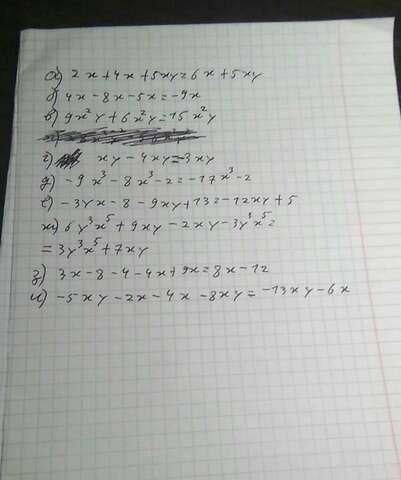 а) 2x+4x+5xy=6x+5xy
б) 4x-8x-5x=-9x
в) 9x²y+6x²y=15x²y
г) xy-4xy=-3xy
д) -9x³-8x³-2=-17x³-2
е) -3yx-8-9xy+13=-12xy+5
ж) 6y³x⁵+9xy-2xy-3y³x⁵=
=3y³x⁵+7xy
з) 3x-8-4-4x+9x=8x-12
и) -5xy-2x-4x-8xy=-13xy-6x